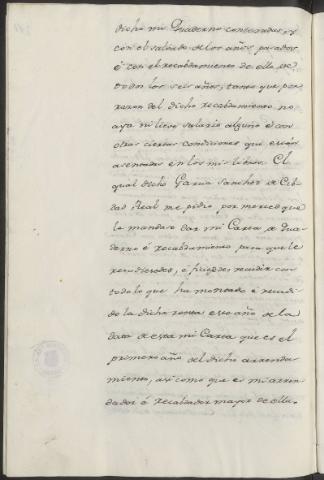 dicho mi Quaderno contenidas, y
con el salvado de los años pasados
é con el recabdamiento de ella de
todos los seis años, tanto que por
razon del dicho recabdamiento no
aya ni lieve salario alguno é con
otras ciertas condiciones que estan
asentadas en los mis libros. El
qual dicho Garcia Sanchez de Cib-
dad Real me pidio por merced que
le mandase dar mi Carta de Qua-
derno é recabdamiento para que le
recudiesedes, é ficiesedes recudir con
todo lo que ha montado é rendi-
do la dicha renta este año de la
data de esta mi Carta que es el
primero año del dicho arrenda-
miento, asi como que a mi arren-
dador é recabdador mayor de ella.